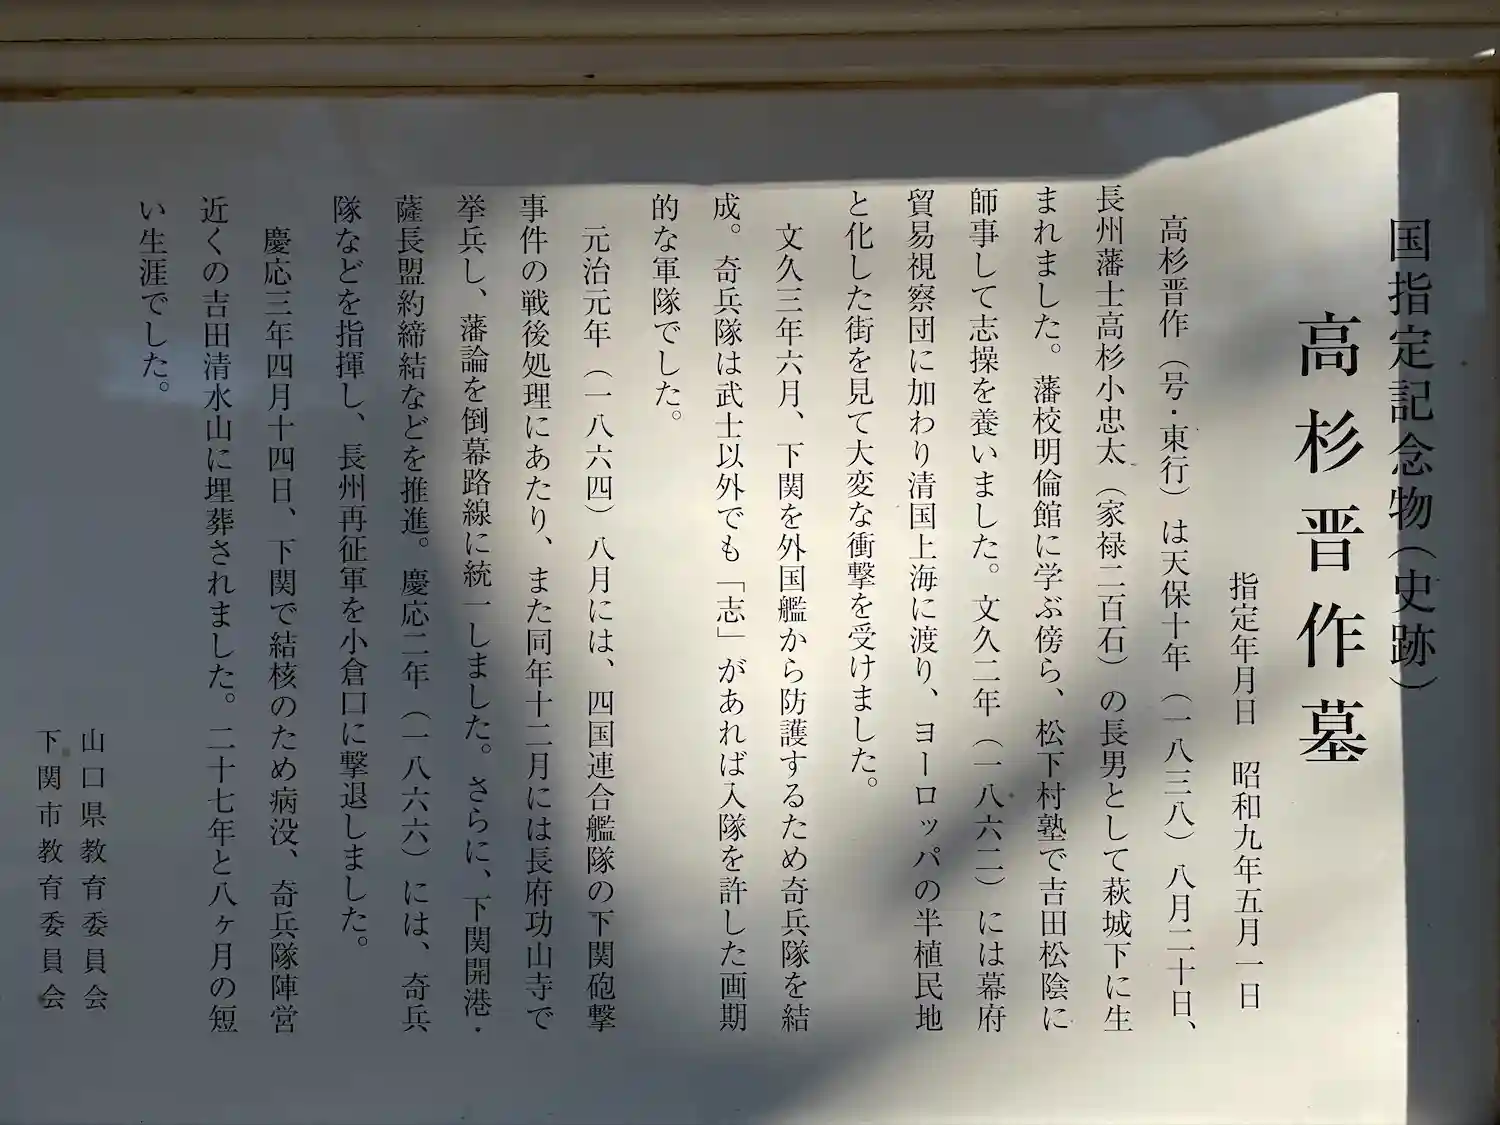 国指定記念物(史跡)
高杉晋作墓
指定年月日　昭和九年五月一日
高杉晋作（号・東行）は天保十年（一八三八）八月二十日、
長州藩士高杉小忠太（家禄二百石）の長男として萩城下に生
まれました。藩校明倫館に学ぶ傍ら、松下村塾で吉田松陰に
師事して志操を養いました。文久二年（一八六二）には幕府
貿易視察団に加わり清国上海に渡り、ヨーロッパの半植民地
と化した街を見て大変な衝撃を受けました。
文久三年六月、下関を外国艦から防護するため奇兵隊を結
成。奇兵隊は武士以外でも「志」があれば入隊を許した画期
的な軍隊でした。
元治元年（一八六四）八月には、四国連合艦隊の下関砲撃
事件の戦後処理にあたり、また同年十二月には長府功山寺で
挙兵し、藩論を倒幕路線に統一しました。さらに、下関開港・
薩長盟約締結などを推進。慶応二年（一八六六）には、奇兵
隊などを指揮し、長州再征軍を小倉口に撃退しました。
慶応三年四月十四日、下関で結核のため病没、奇兵隊陣営
近くの吉田清水山に埋葬されました。二十七年と八ヶ月の短
い生涯でした。
山口県教育委員会
下関市教育委員会